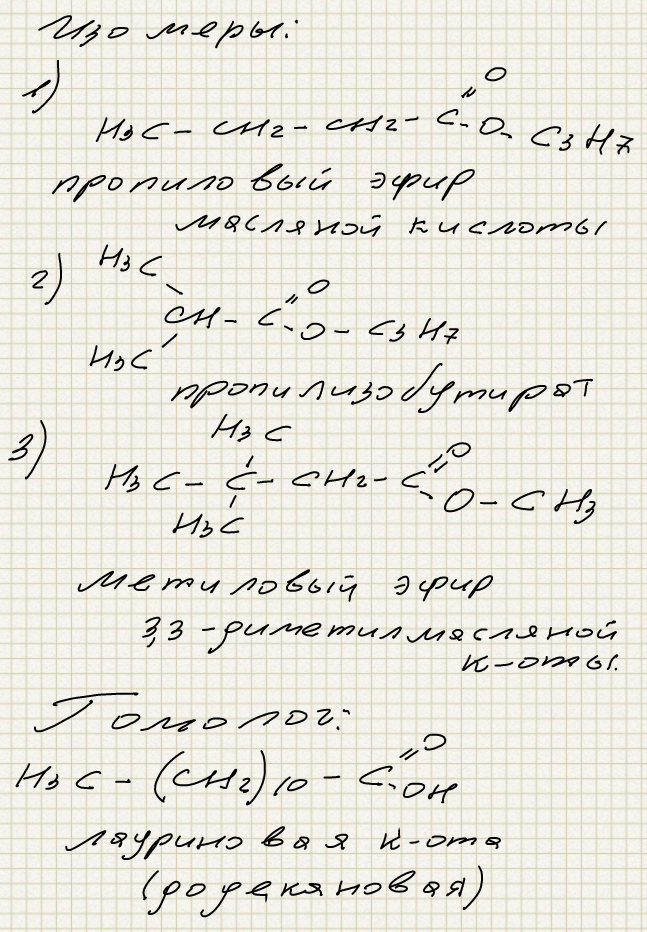 Изомеры:
1)
H3C – CH2 – CH2 – C(=O) – O – C3H7
пропиловый эфир
масляной кислоты
2)
H3C
CH – C(=O) – O – C3H7
H3C
пропилизобутират
3)
H3C
H3C – C – CH2 – C(=O) – O – CH3
H3C
метиловый эфир
3,3-диметилмасляной
к-оты.
Гомолог:
H3C – (CH2)10 – C(=O) – OH
лауриновая к-ота
(додекановая)